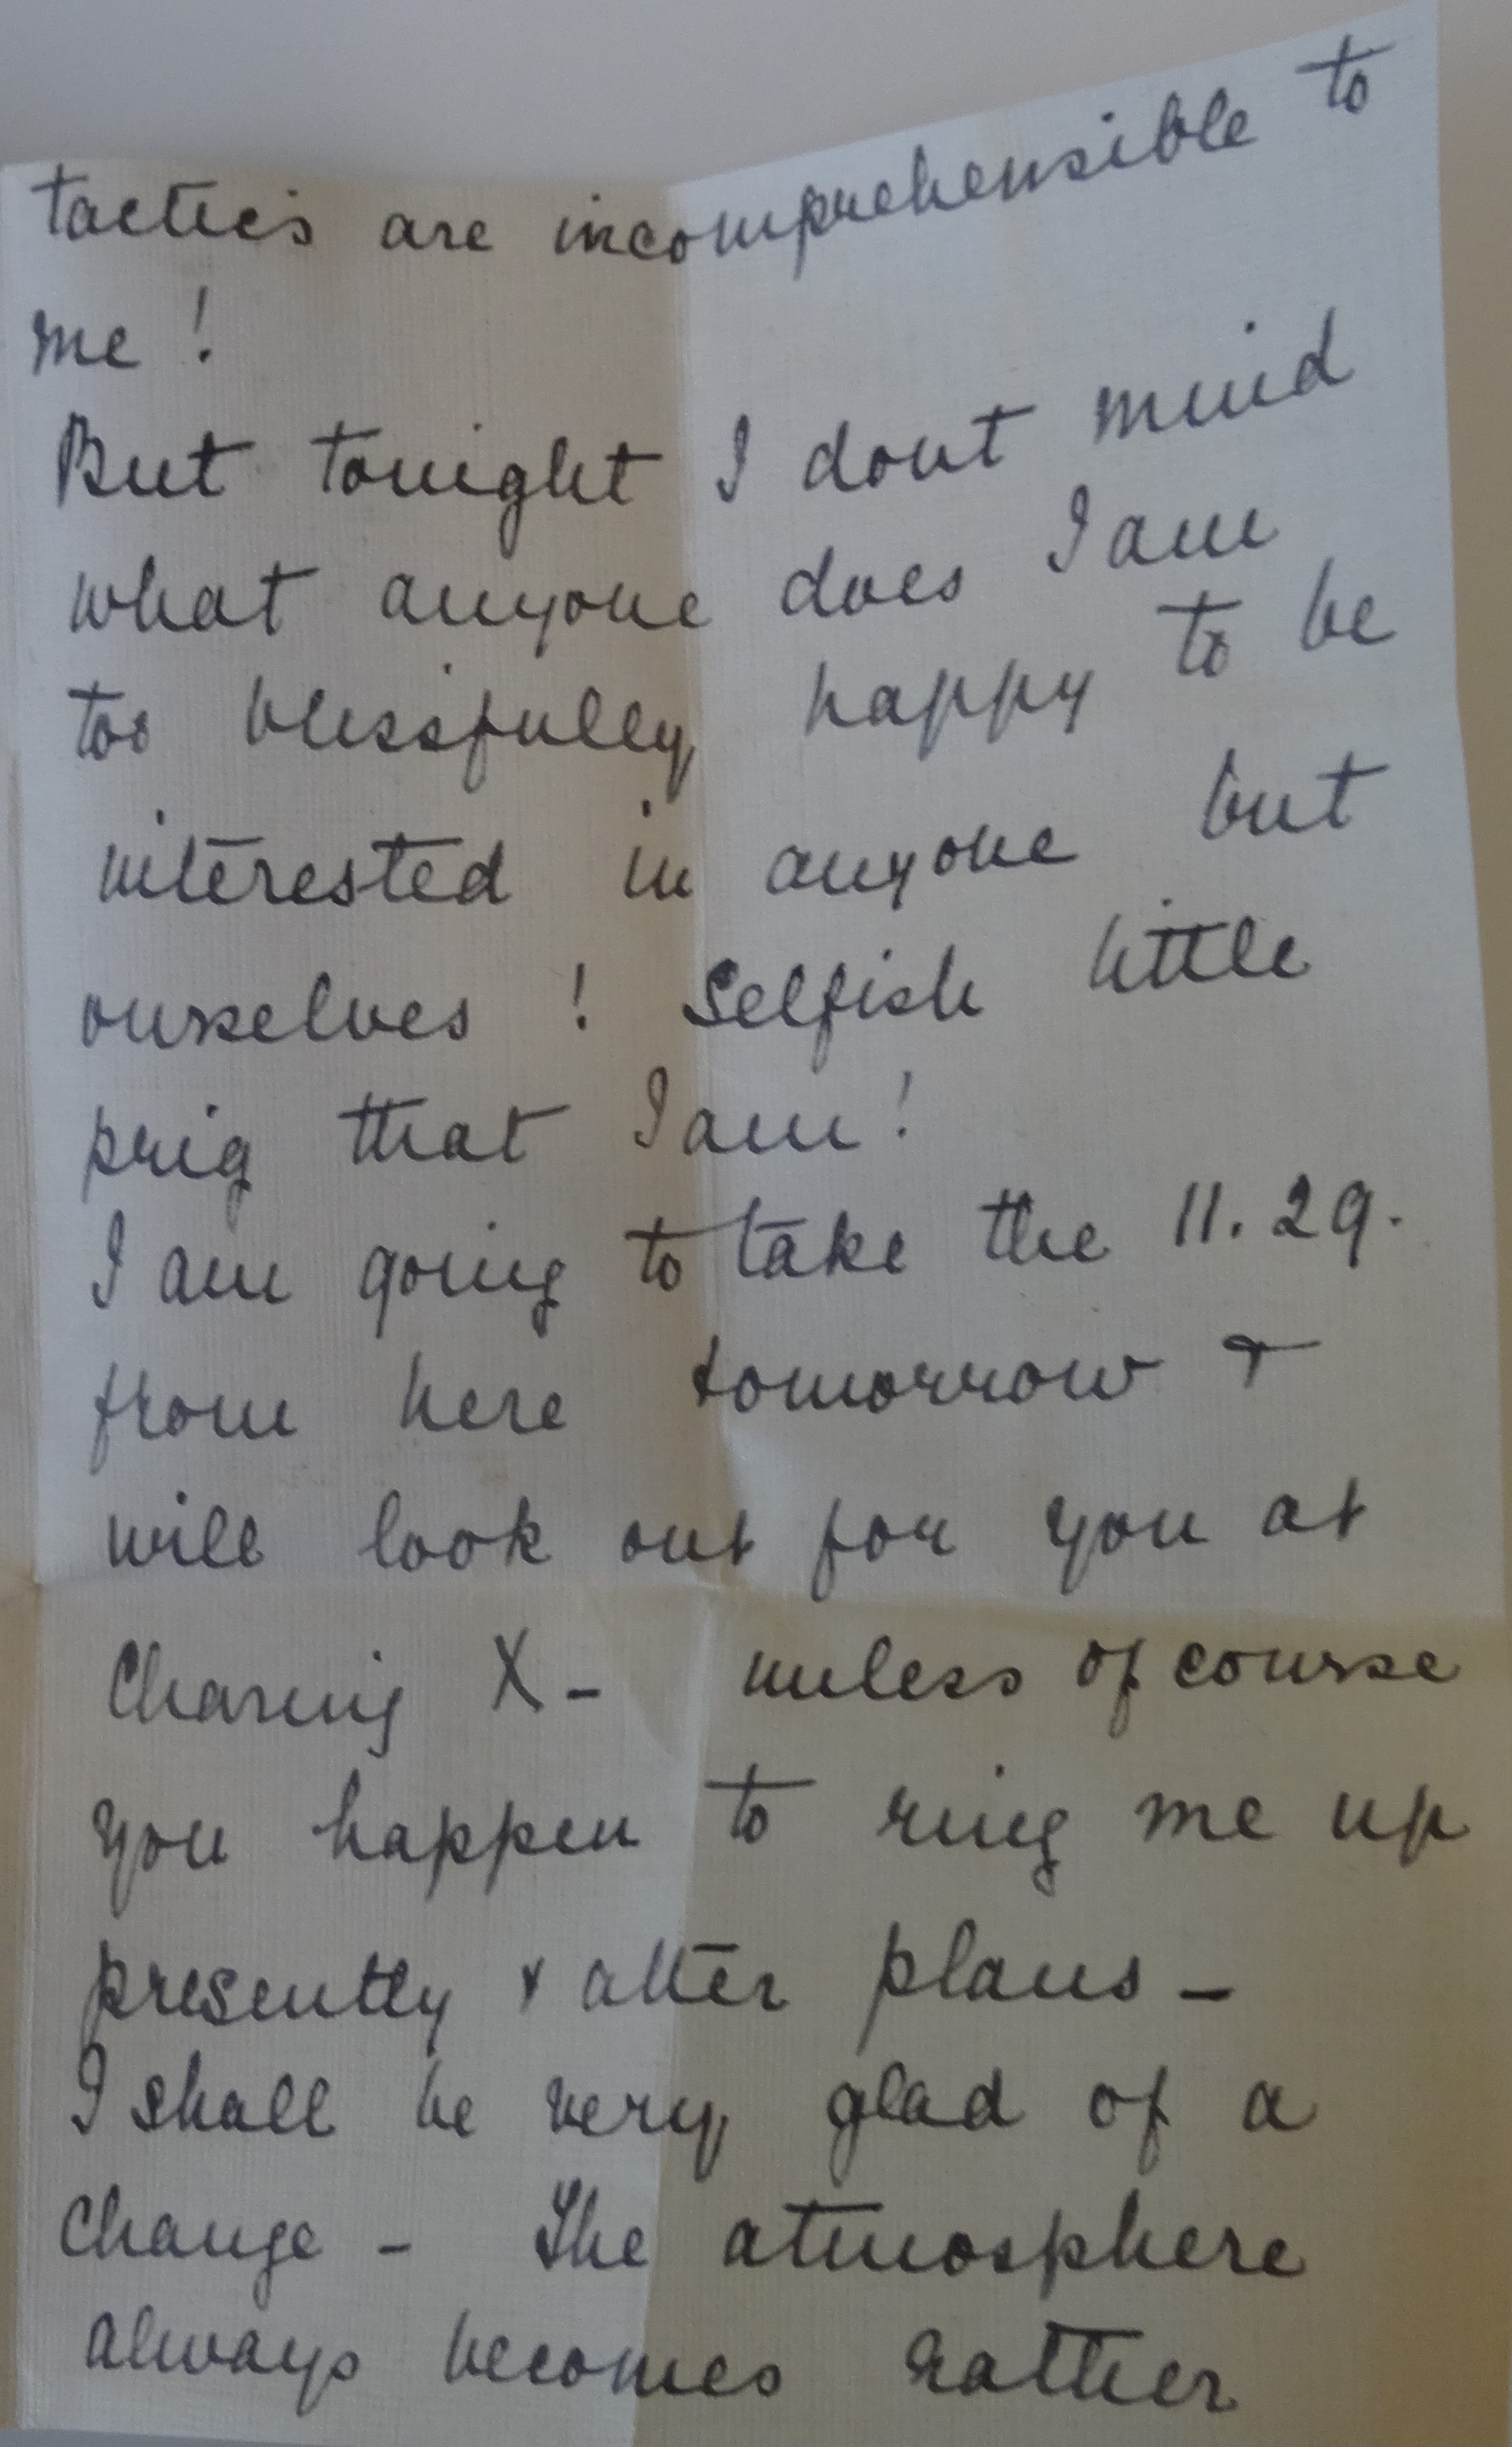 tactics are incomprehensible to
me !
But tonight I dont mind
what anyone does I am
too blissfully happy to be
interested in anyone but
ourselves ! Selfish little
prig that I am !
I am going to take the 11.29.
from here tomorrow &
will look out for you at
Charing X - unless of course
you happen to ring me up
presently & alter plans -
I shall be very glad of a
change - The atmosphere
always becomes rather